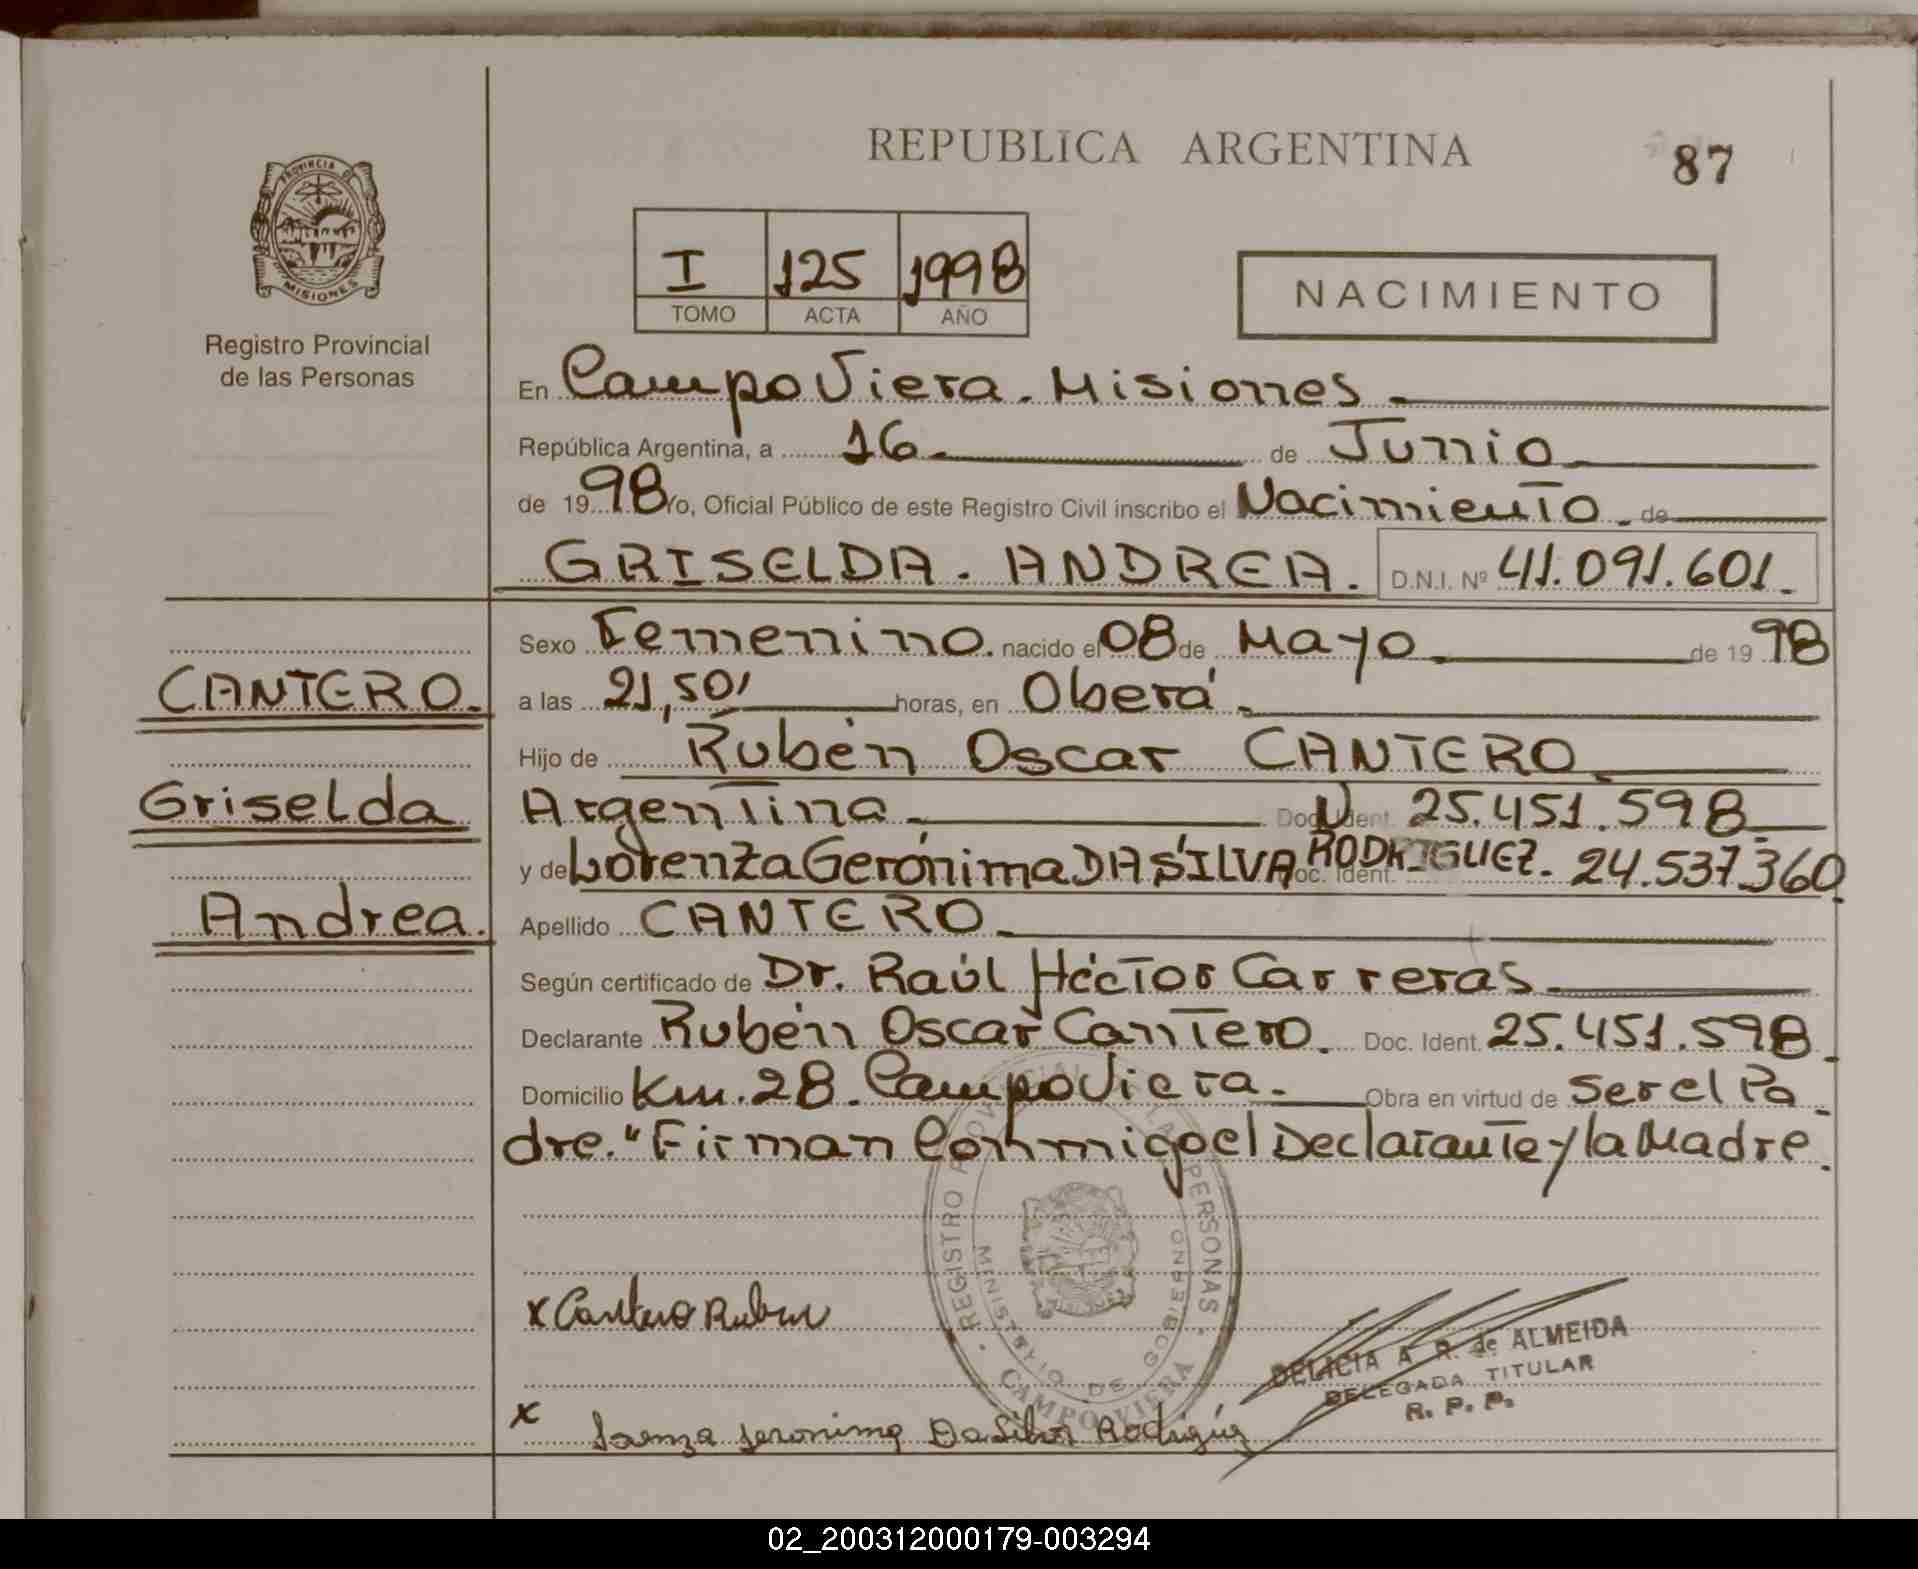 REPUBLICA ARGENTINA
87
PROVINCIA DE
MISIONES
Registro Provincial
de las Personas
I 125 1998
TOMO ACTA AÑO
NACIMIENTO
En Campo Viera. Misiones
República Argentina, a 16 de Junio
de 1998 Yo, Oficial Público de este Registro Civil inscribo el Nacimiento. de
GRISELDA. ANDREA. D.N.I. Nº 41.091.601.
Sexo Femenino. nacido el 08 de Mayo de 1998
CANTERO.
a las 21,50' horas, en Oberá.
Hijo de Rubén Oscar CANTERO.
Griselda
Argentina Doc. Ident. 25.451.598
y de Lorenza Gerónima DA SILVA RODRIGUEZ. Doc. Ident. 24.537.360.
Andrea.
Apellido CANTERO.
Según certificado de Dr. Raúl Héctor Carreras.
Declarante Rubén Oscar Cantero. Doc. Ident. 25.451.598.
Domicilio Km. 28. Campo Viera. Obra en virtud de ser el Pa
dre. "Firman Conmigo el Declarante y la Madre.
REGISTRO PROVINCIAL DE LAS PERSONAS
MINISTERIO DE GOBIERNO
CAMPO VIERA
MISIONES
x Cantero Ruben
DELICIA A R. de ALMEIDA
DELEGADA TITULAR
R. P. P.
x Jeronima Da Silva
02_200312000179-003294